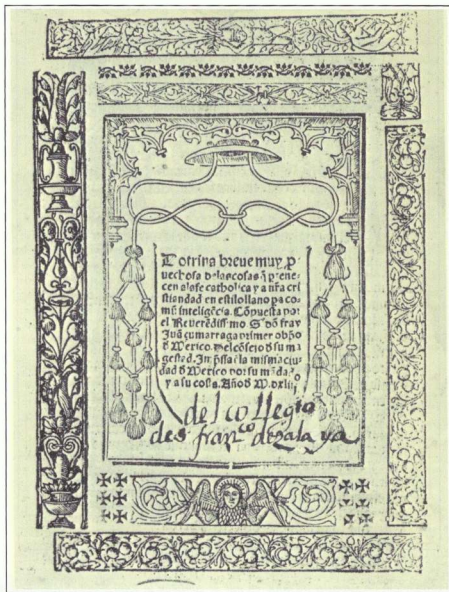 Dotrina breue muy p
uechosa delas cosas q̄ ꝑtene-
cen ala fe catholica y a nr̄a cri
stiandad en estilo llano pa co
mū inteligēcia. Cōpuesta por
el Reuerēdissimo. S. dō fray
Juā çumarraga primer obpo
d Mexico. del cōsejo d su ma
gestad. Impssa ē la misma ciu
dad d Mexico por su mādado
y a su costa. Año d M.dxliij
del collegio
de s franco. de zalaya